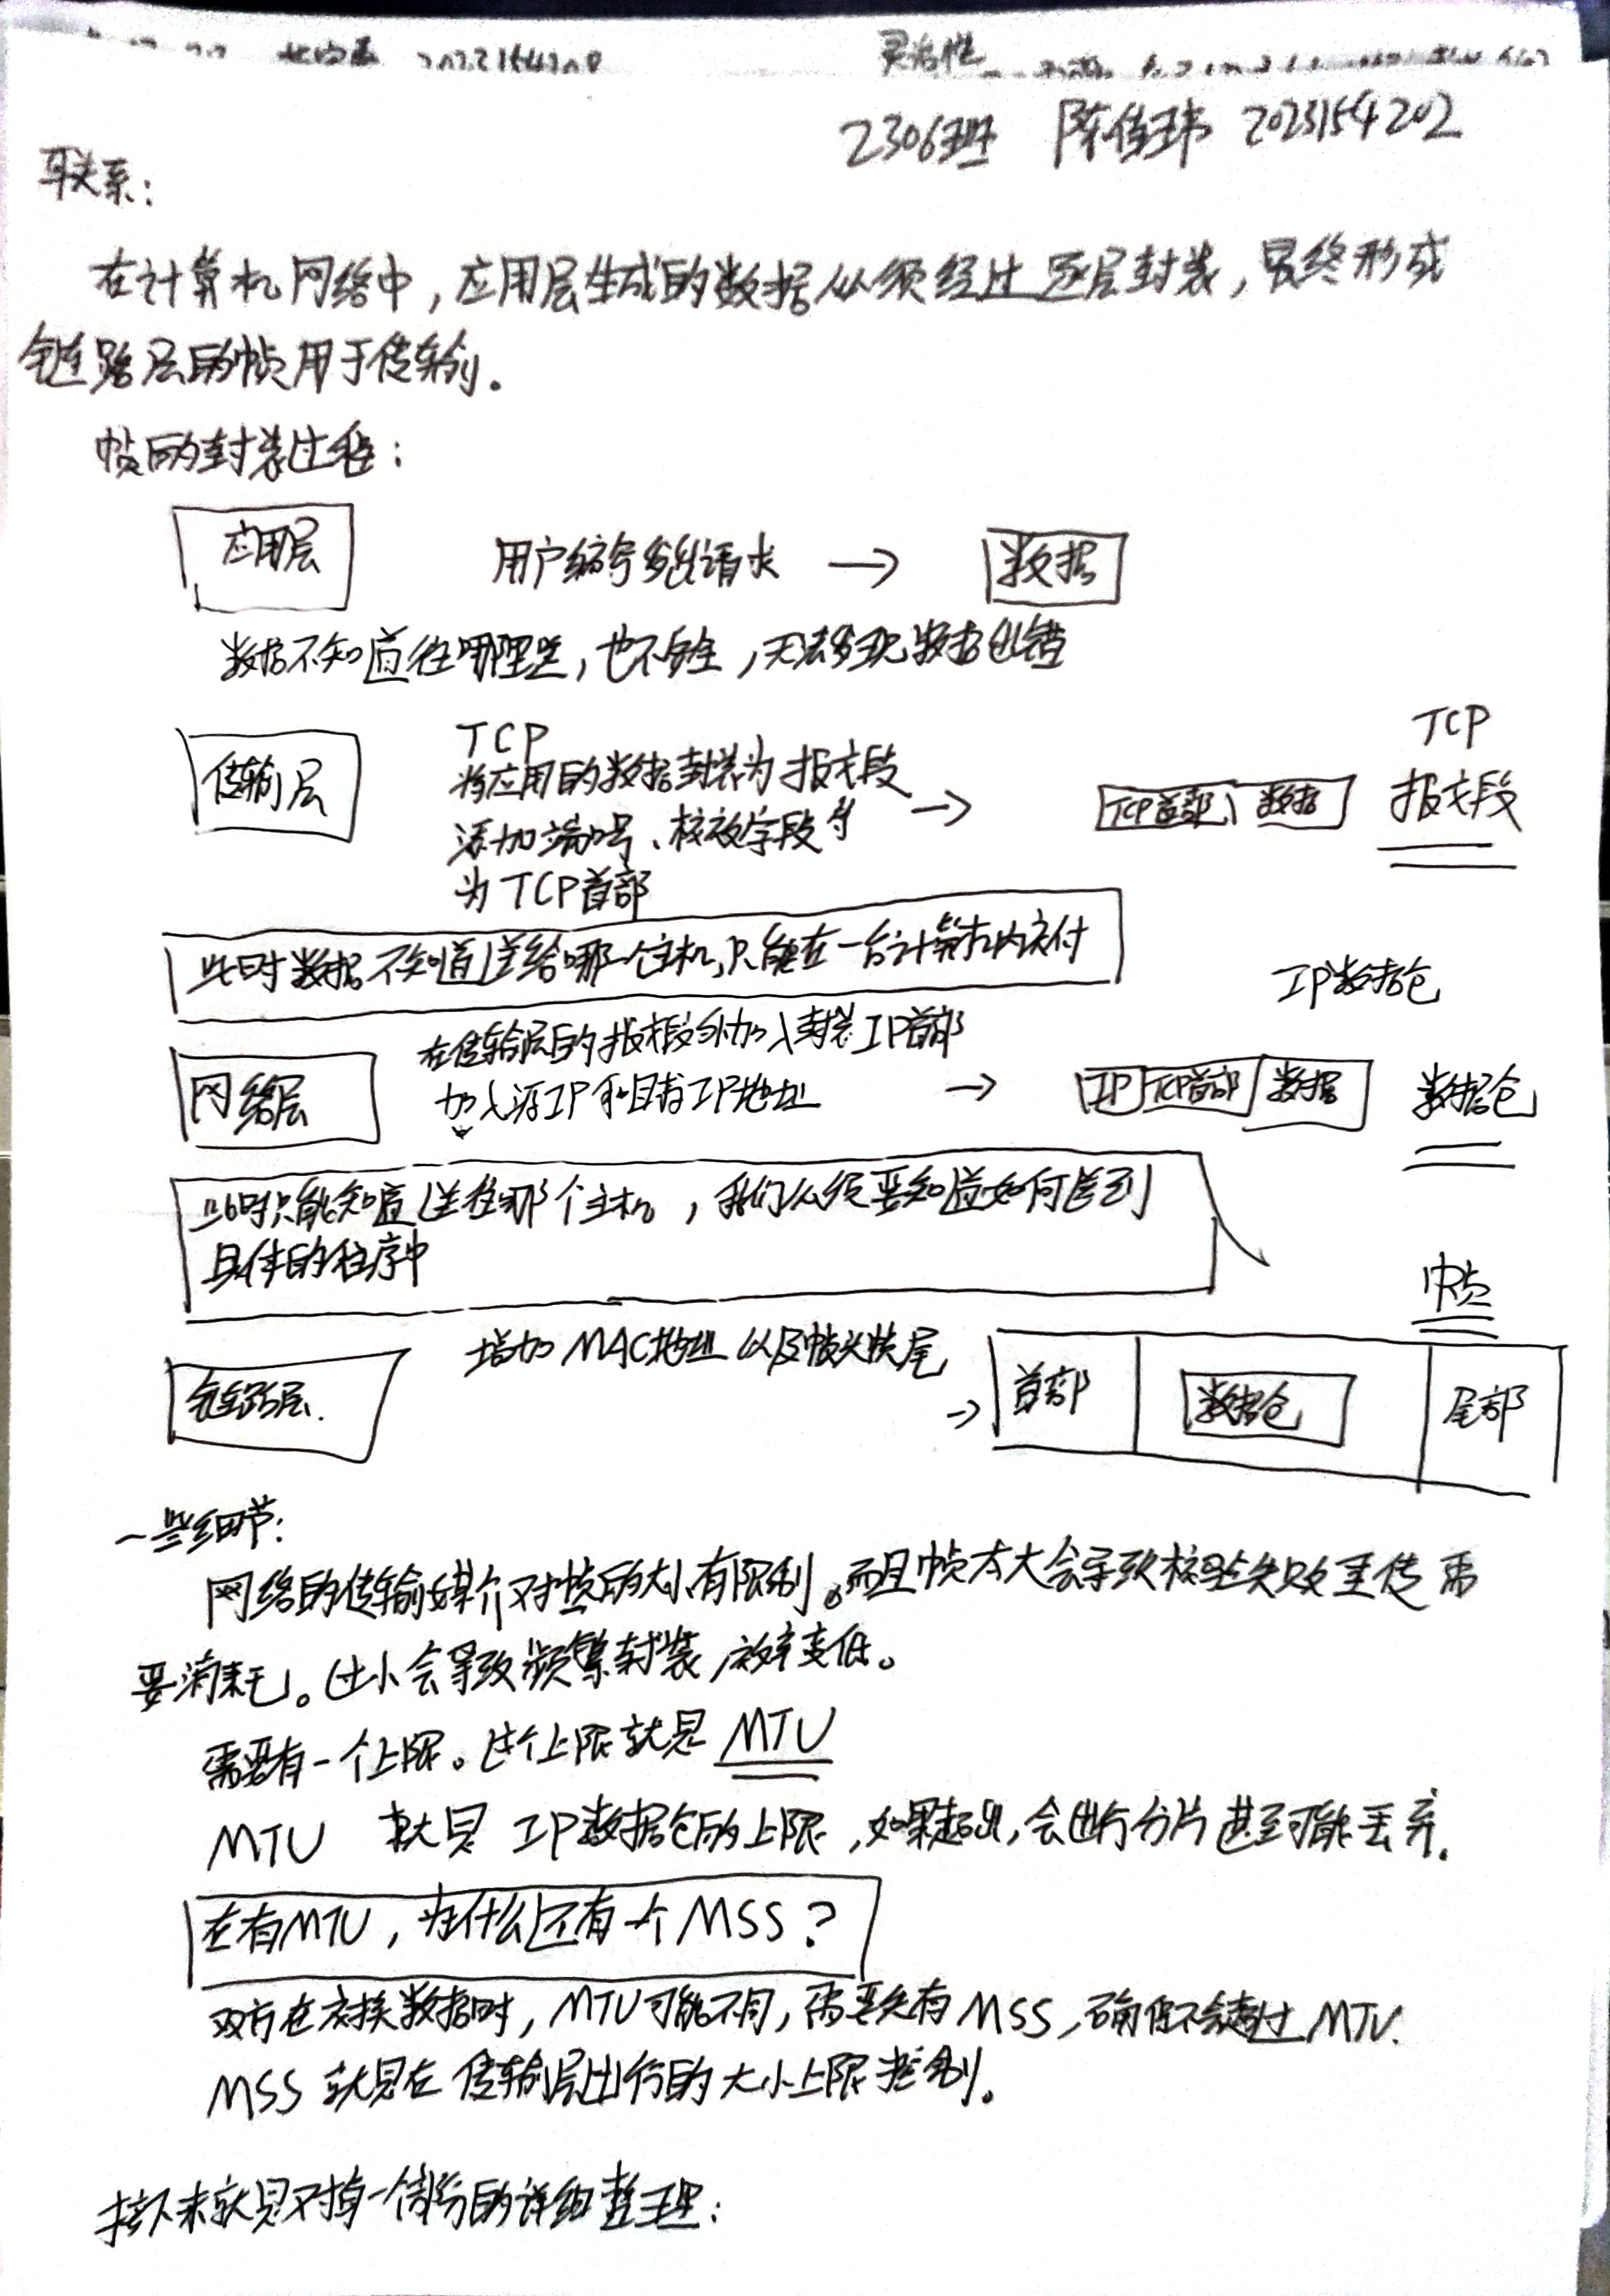 灵活性
2306班 陈佳玮 2023154202
联系：
在计算机网络中，应用层生成的数据必须经过逐层封装，最终形成
链路层的帧用于传输。
帧的封装过程：
应用层 用户编写发出请求 → 数据
数据不知道往哪里送，也不安全，无法发现数据出错
传输层 TCP
将应用的数据封装为报文段
添加端口号、校验字段等
为TCP首部
→ TCP首部 数据 TCP
报文段
此时数据不知道送给哪一个主机，只能在一台计算机内交付
IP数据包
网络层 在传输层的报文段外加入封装IP首部
加入源IP和目的IP地址 → IP TCP首部 数据 数据包
此时只能知道送往哪个主机，我们必须要知道如何送到
具体的程序中
帧
链路层. 增加MAC地址以及帧头帧尾
→ 首部 数据包 尾部
一些细节：
网络的传输媒介对帧的大小有限制。而且帧太大会导致校验失败重传需
要消耗。过小会导致频繁封装，效率变低。
需要有一个上限。这个上限就是MTU
MTU 就是 IP数据包的上限，如果超出，会进行分片甚至可能丢弃.
在有MTU，为什么还有一个MSS？
双方在交换数据时，MTU可能不同，需要先有MSS，确保不会超过MTU.
MSS 就是在传输层进行的大小上限控制。
接下来就是对每一个部分的详细整理：